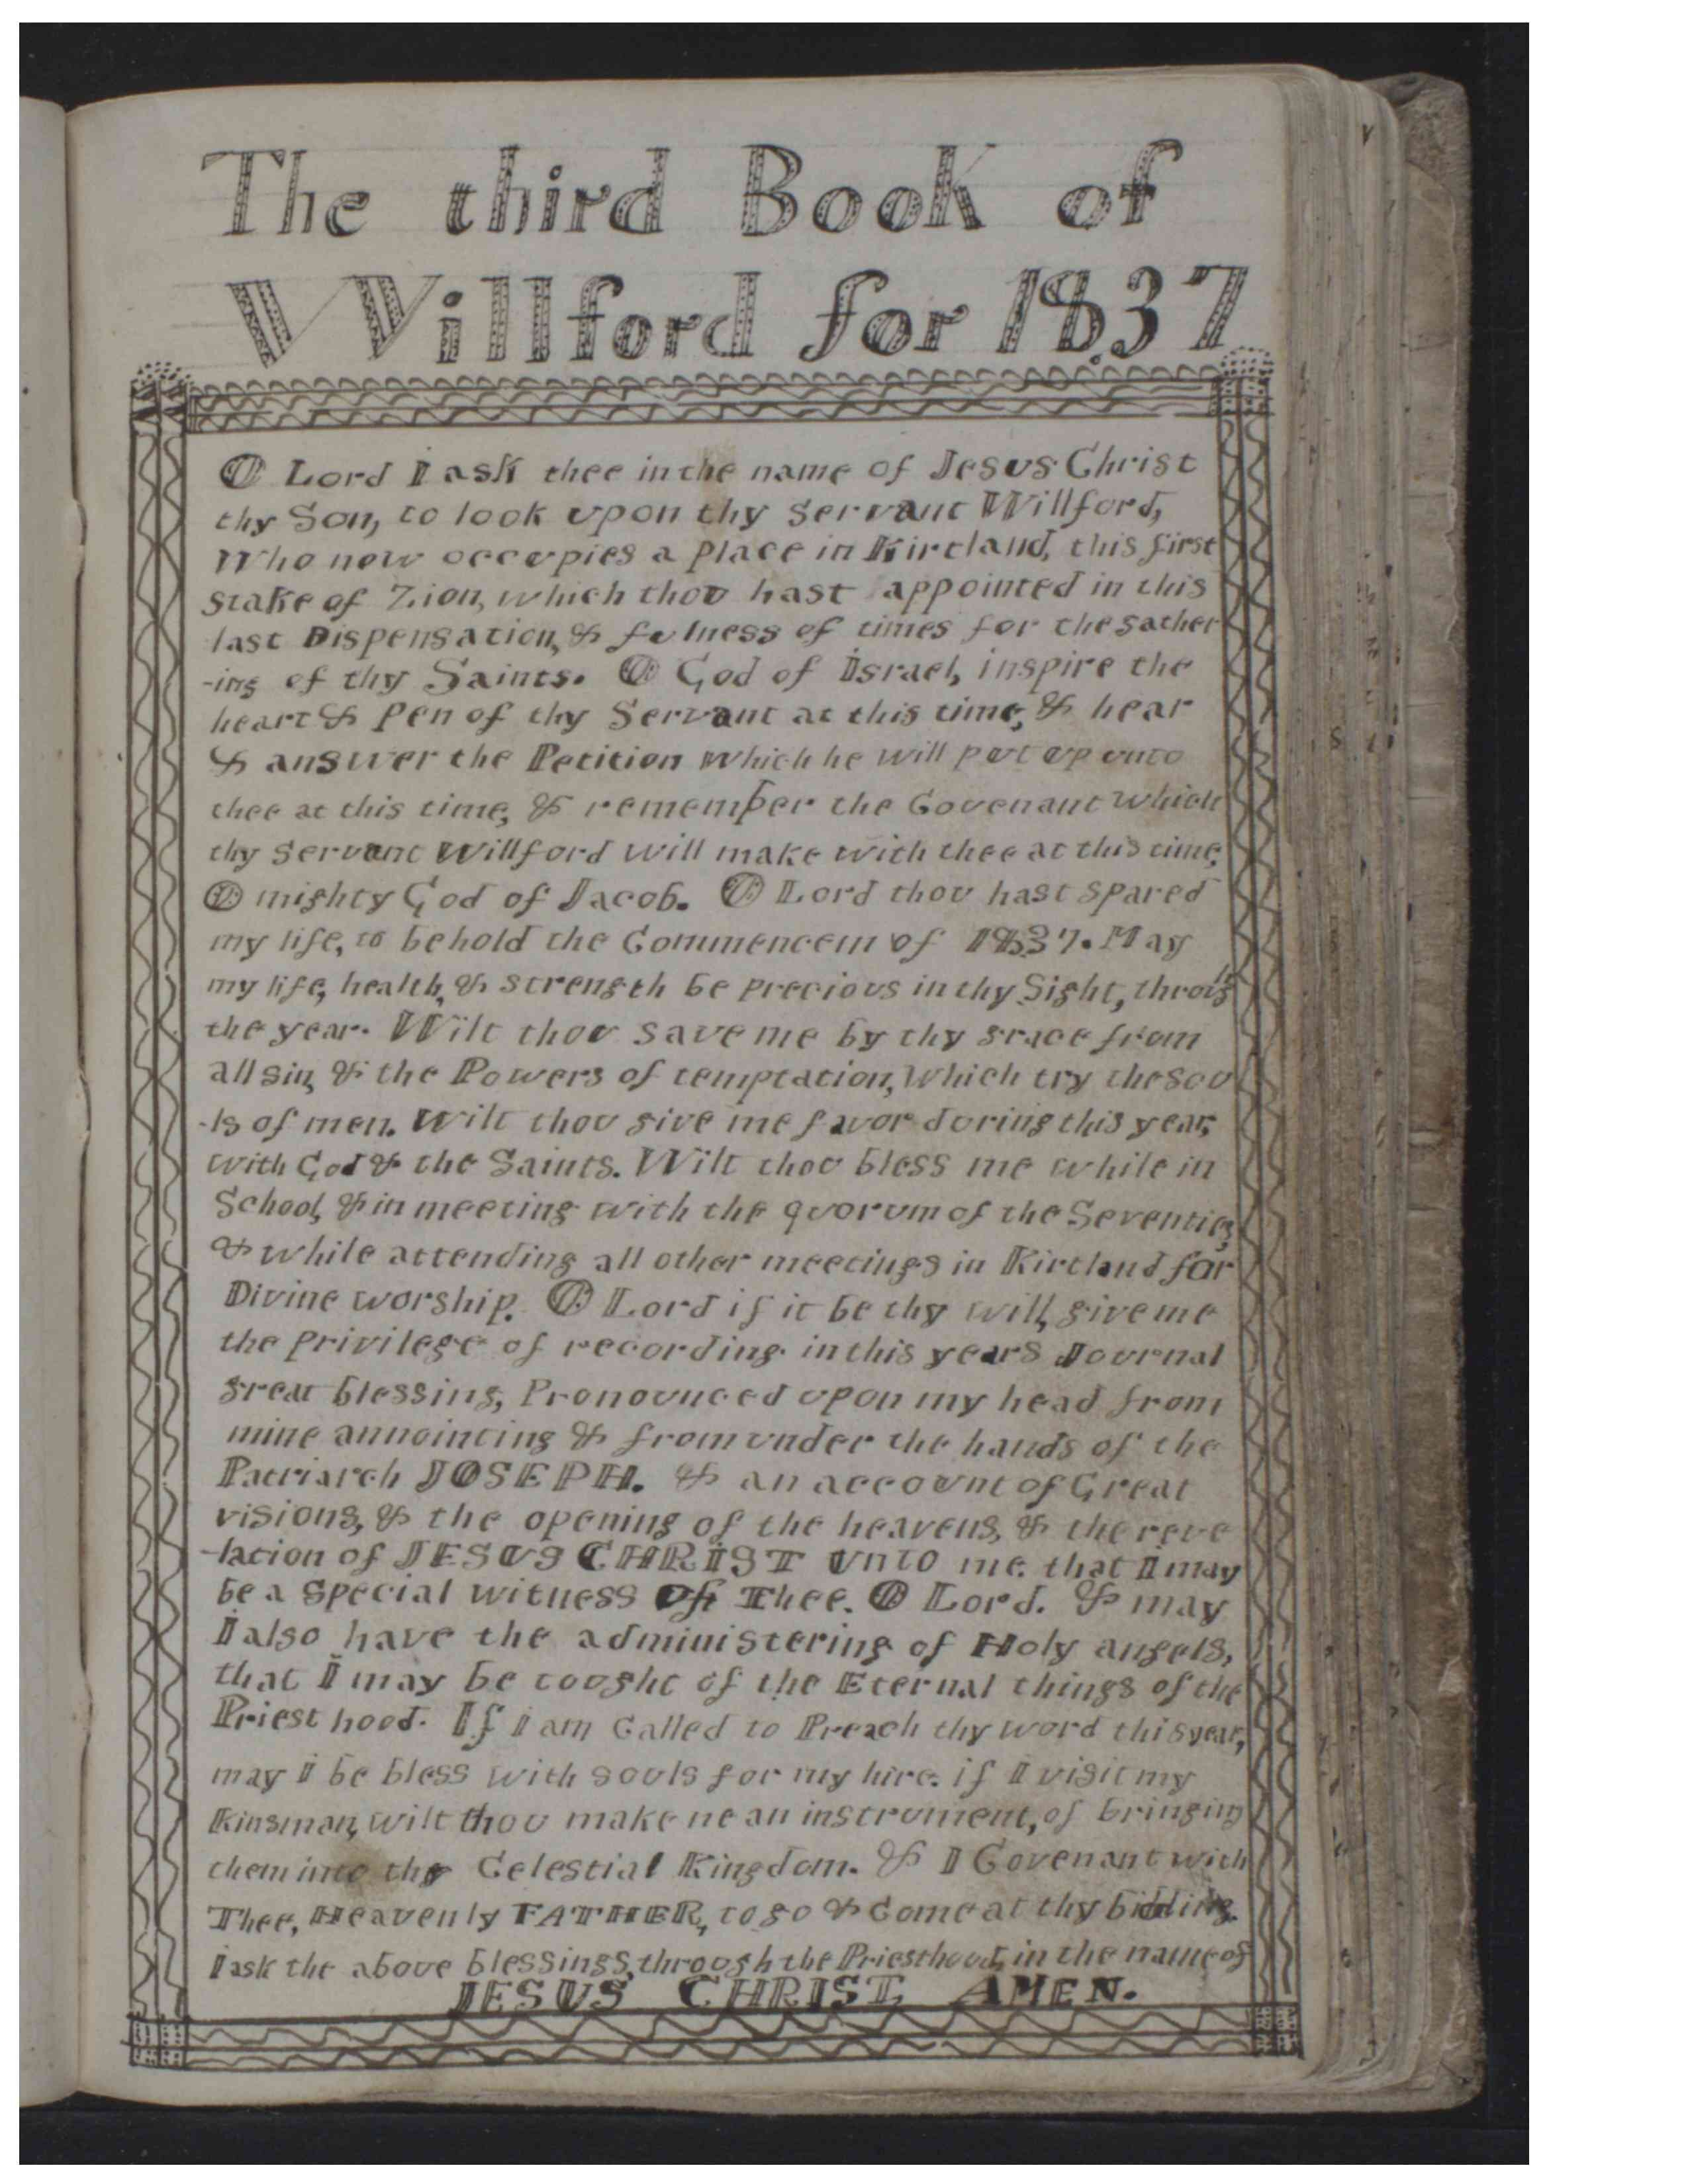 The third Book of
Willford for 1837
O Lord I ask thee in the name of Jesus Christ
thy Son, to look upon thy Servant Willford,
Who now occupies a place in Kirtland, this first
stake of Zion, which thou hast appointed in this
last Dispensation, & fulness of times for the gather
-ing of thy Saints. O God of Israel, inspire the
heart & Pen of thy Servant at this time, & hear
& answer the Petition which he will put up unto
thee at this time, & remember the Covenant which
thy Servant Willford will make with thee at this time,
O mighty God of Jacob. O Lord thou hast spared
my life, to behold the Commencem of 1837. May
my life, health, & strength be precious in thy Sight, throug
the year. Wilt thou save me by thy grace from
all sin, & the Powers of temptation, which try the sou
-ls of men. Wilt thou give me favor during this year,
with God & the Saints. Wilt thou bless me while in
School, & in meeting with the quorum of the Seventies,
& while attending all other meetings in Kirtland for
Divine worship. O Lord if it be thy will, give me
the privilege of recording in this years Journal
great blessing, Pronounced upon my head from
mine annointing & from under the hands of the
Patriarch JOSEPH. & an account of Great
visions, & the opening of the heavens, & the reve
-lation of JESUS CHRIST unto me. that I may
be a special witness of Thee. O Lord. & may
I also have the administering of Holy angels,
that I may be tought of the Eternal things of the
Priesthood. If I am Called to Preach thy word this year,
may I be bless with souls for my hire. if I visit my
Kinsman, wilt thou make ne an instrument, of bringing
them into thy Celestial Kingdom. & I Covenant with
Thee, Heavenly FATHER, to go & Come at thy bidding.
I ask the above blessings, through the Priesthood, in the name of
JESUS CHRIST, AMEN.